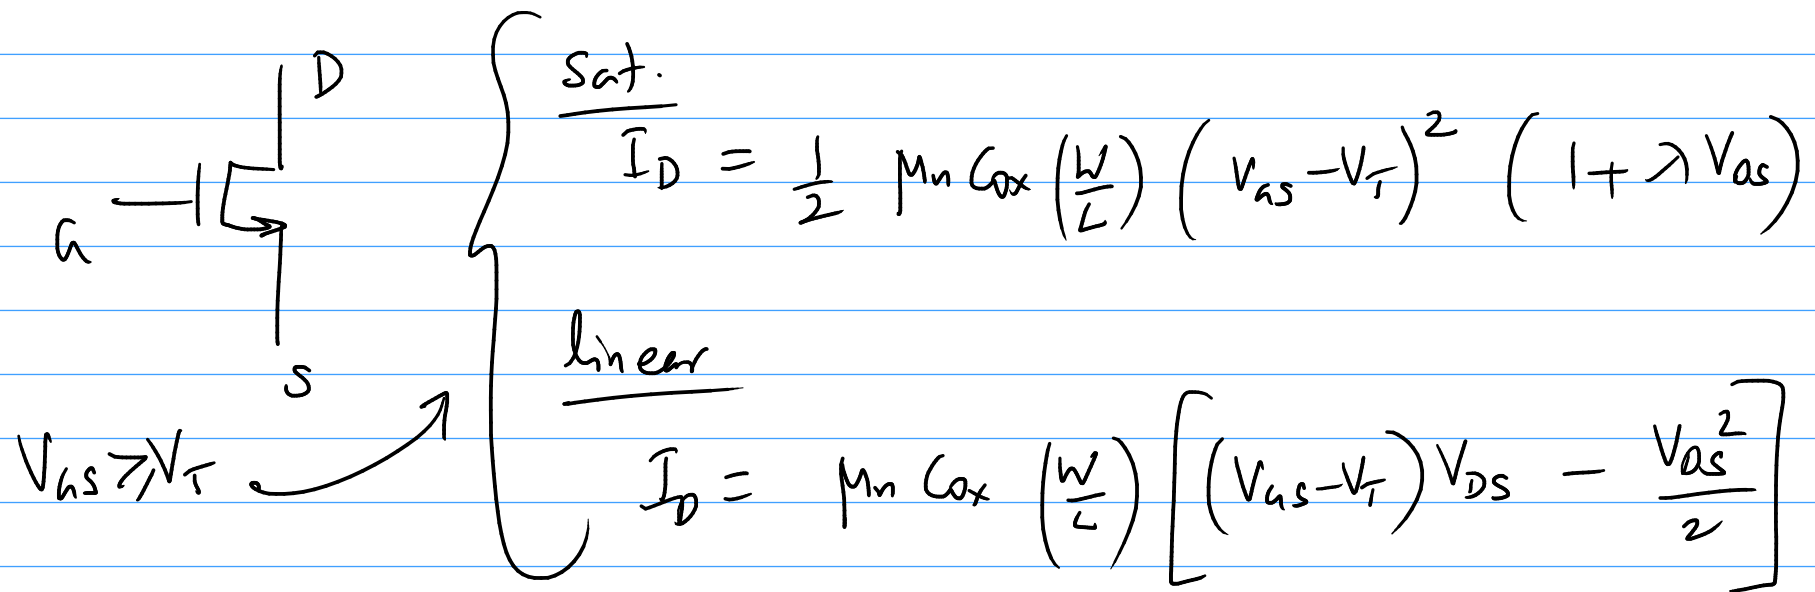 D
G
S
V_GS ≥ V_T
Sat.
I_D = 1/2 μn Cox (W/L) (V_GS - V_T)^2 (1 + λ V_DS)
linear
I_D = μn Cox (W/L) [(V_GS - V_T) V_DS - V_DS^2/2]